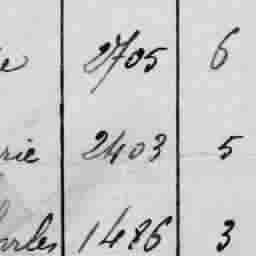 e 2705 6
rie 2403 5
arles 1486 3